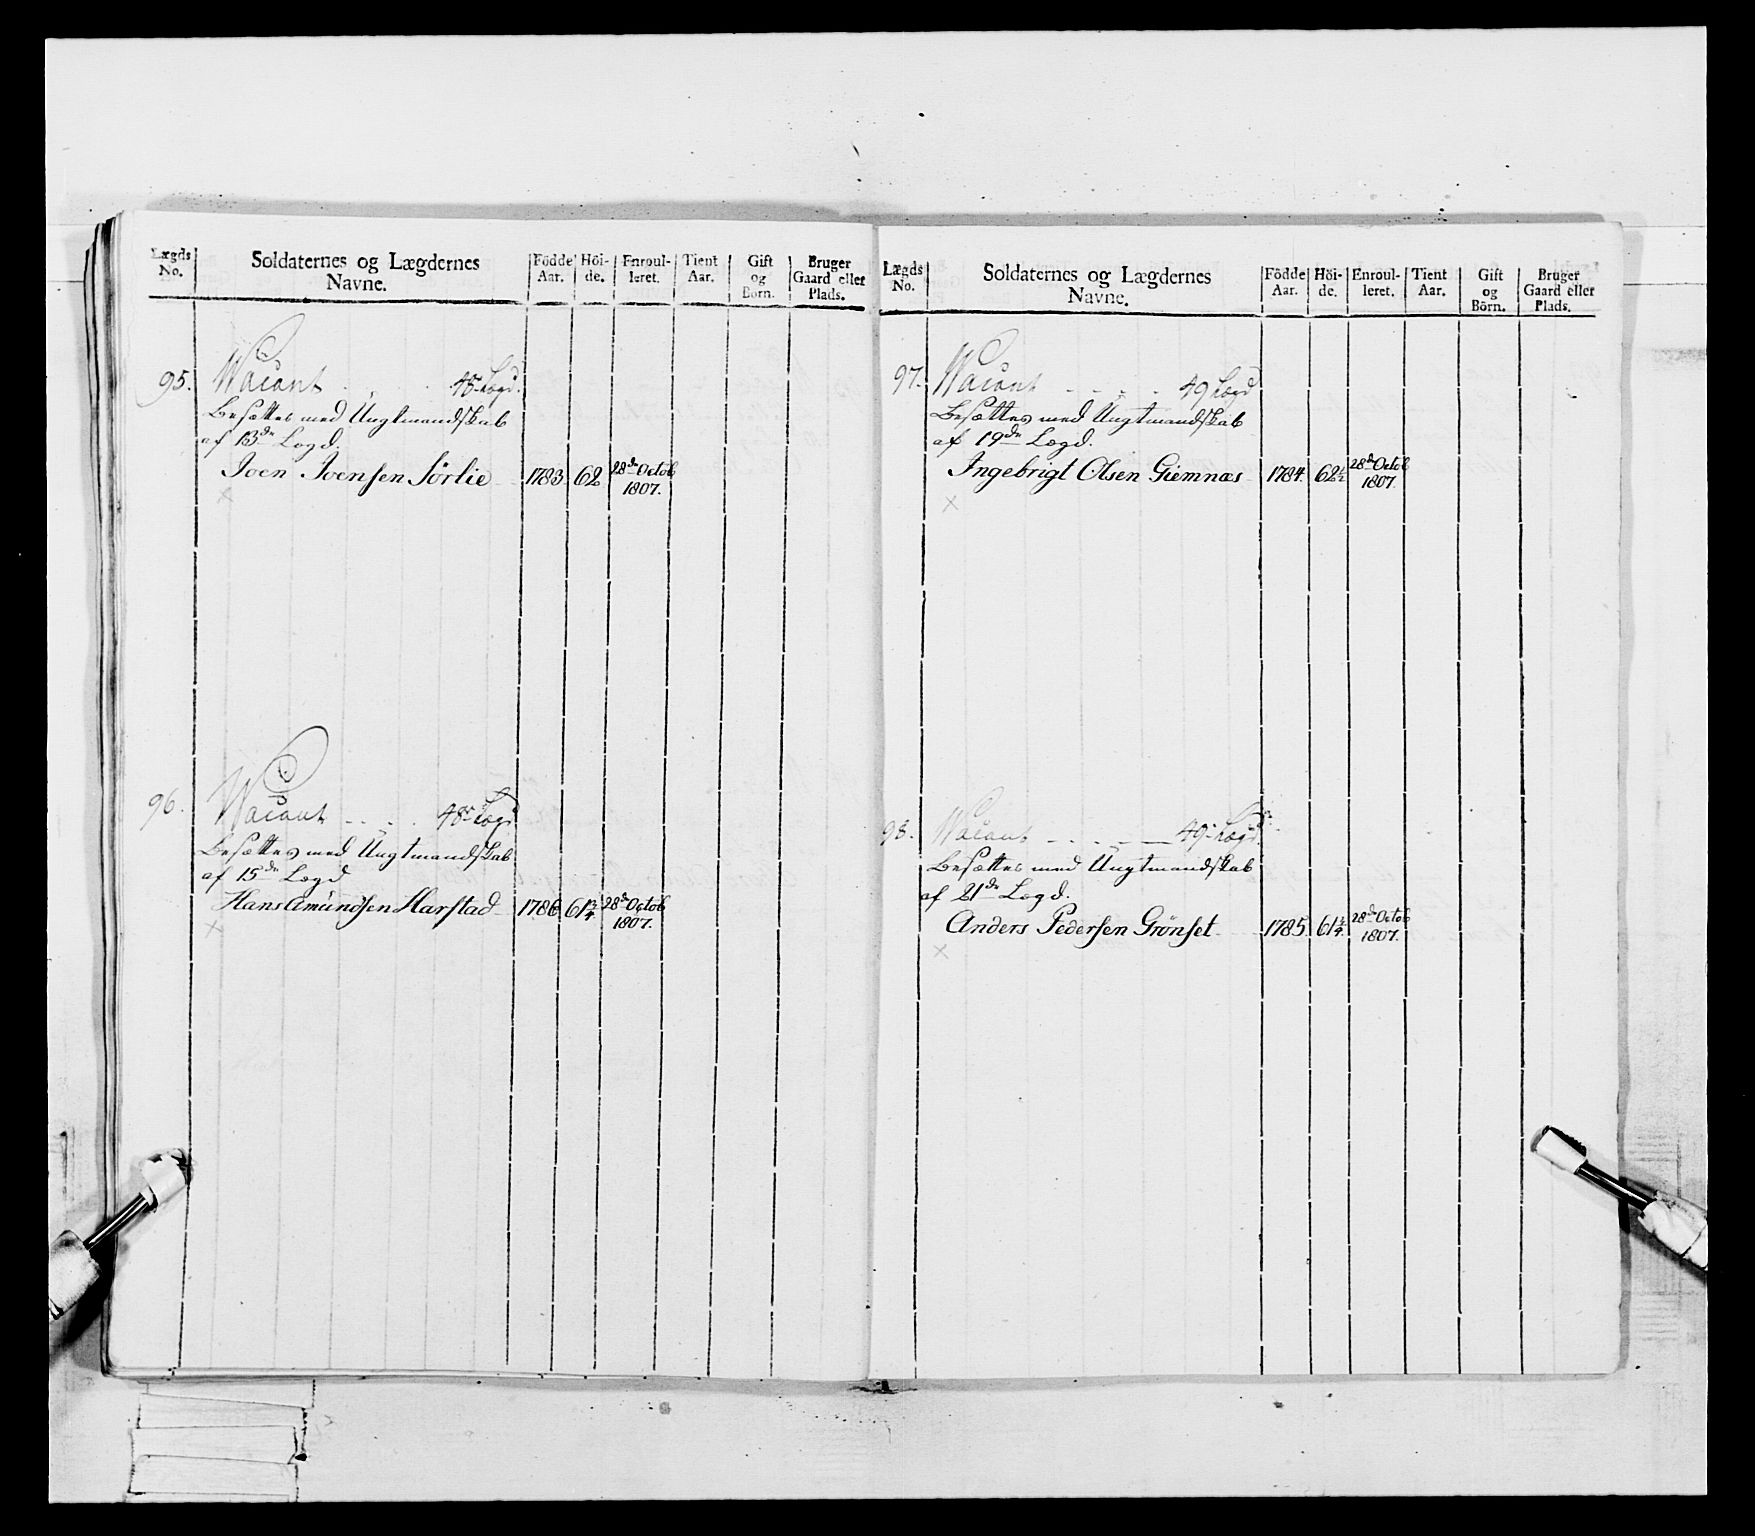 Lægds No.
Soldaternes og Lægdernes Navne.
Födde Aar.
Höi-de.
Enroul-leret.
Tient Aar.
Gift og Börn.
Bruger Gaard eller Plads.
95. Wacant 48 Lægd.
Besættes med Ungtmandskab
af 13de Lægd.
Joen Joensen Sörlie 1783 62 28de Octob 1807.
×
96. Wacant 48 Lægd
Besættes med Ungtmandskab
af 15de Lægd
Hans Amundsen Harstad 1786 61 3/4 28de Octob 1807.
×
Lægds No.
Soldaternes og Lægdernes Navne.
Födde Aar.
Höi-de.
Enroul-leret.
Tient Aar.
Gift og Börn.
Bruger Gaard eller Plads.
97. Wacant 49 Lægd
Besættes med Ungtmandskab
af 19de Lægd.
Ingebrigt Olsen Giemnæs 1784. 62 1/2 28de Octob 1807.
×
98. Wacant 49 Lægd.
Besættes med Ungtmandskab
af 21de Lægd.
Anders Pedersen Grönset 1785 61 3/4 28de Octob 1807.
×